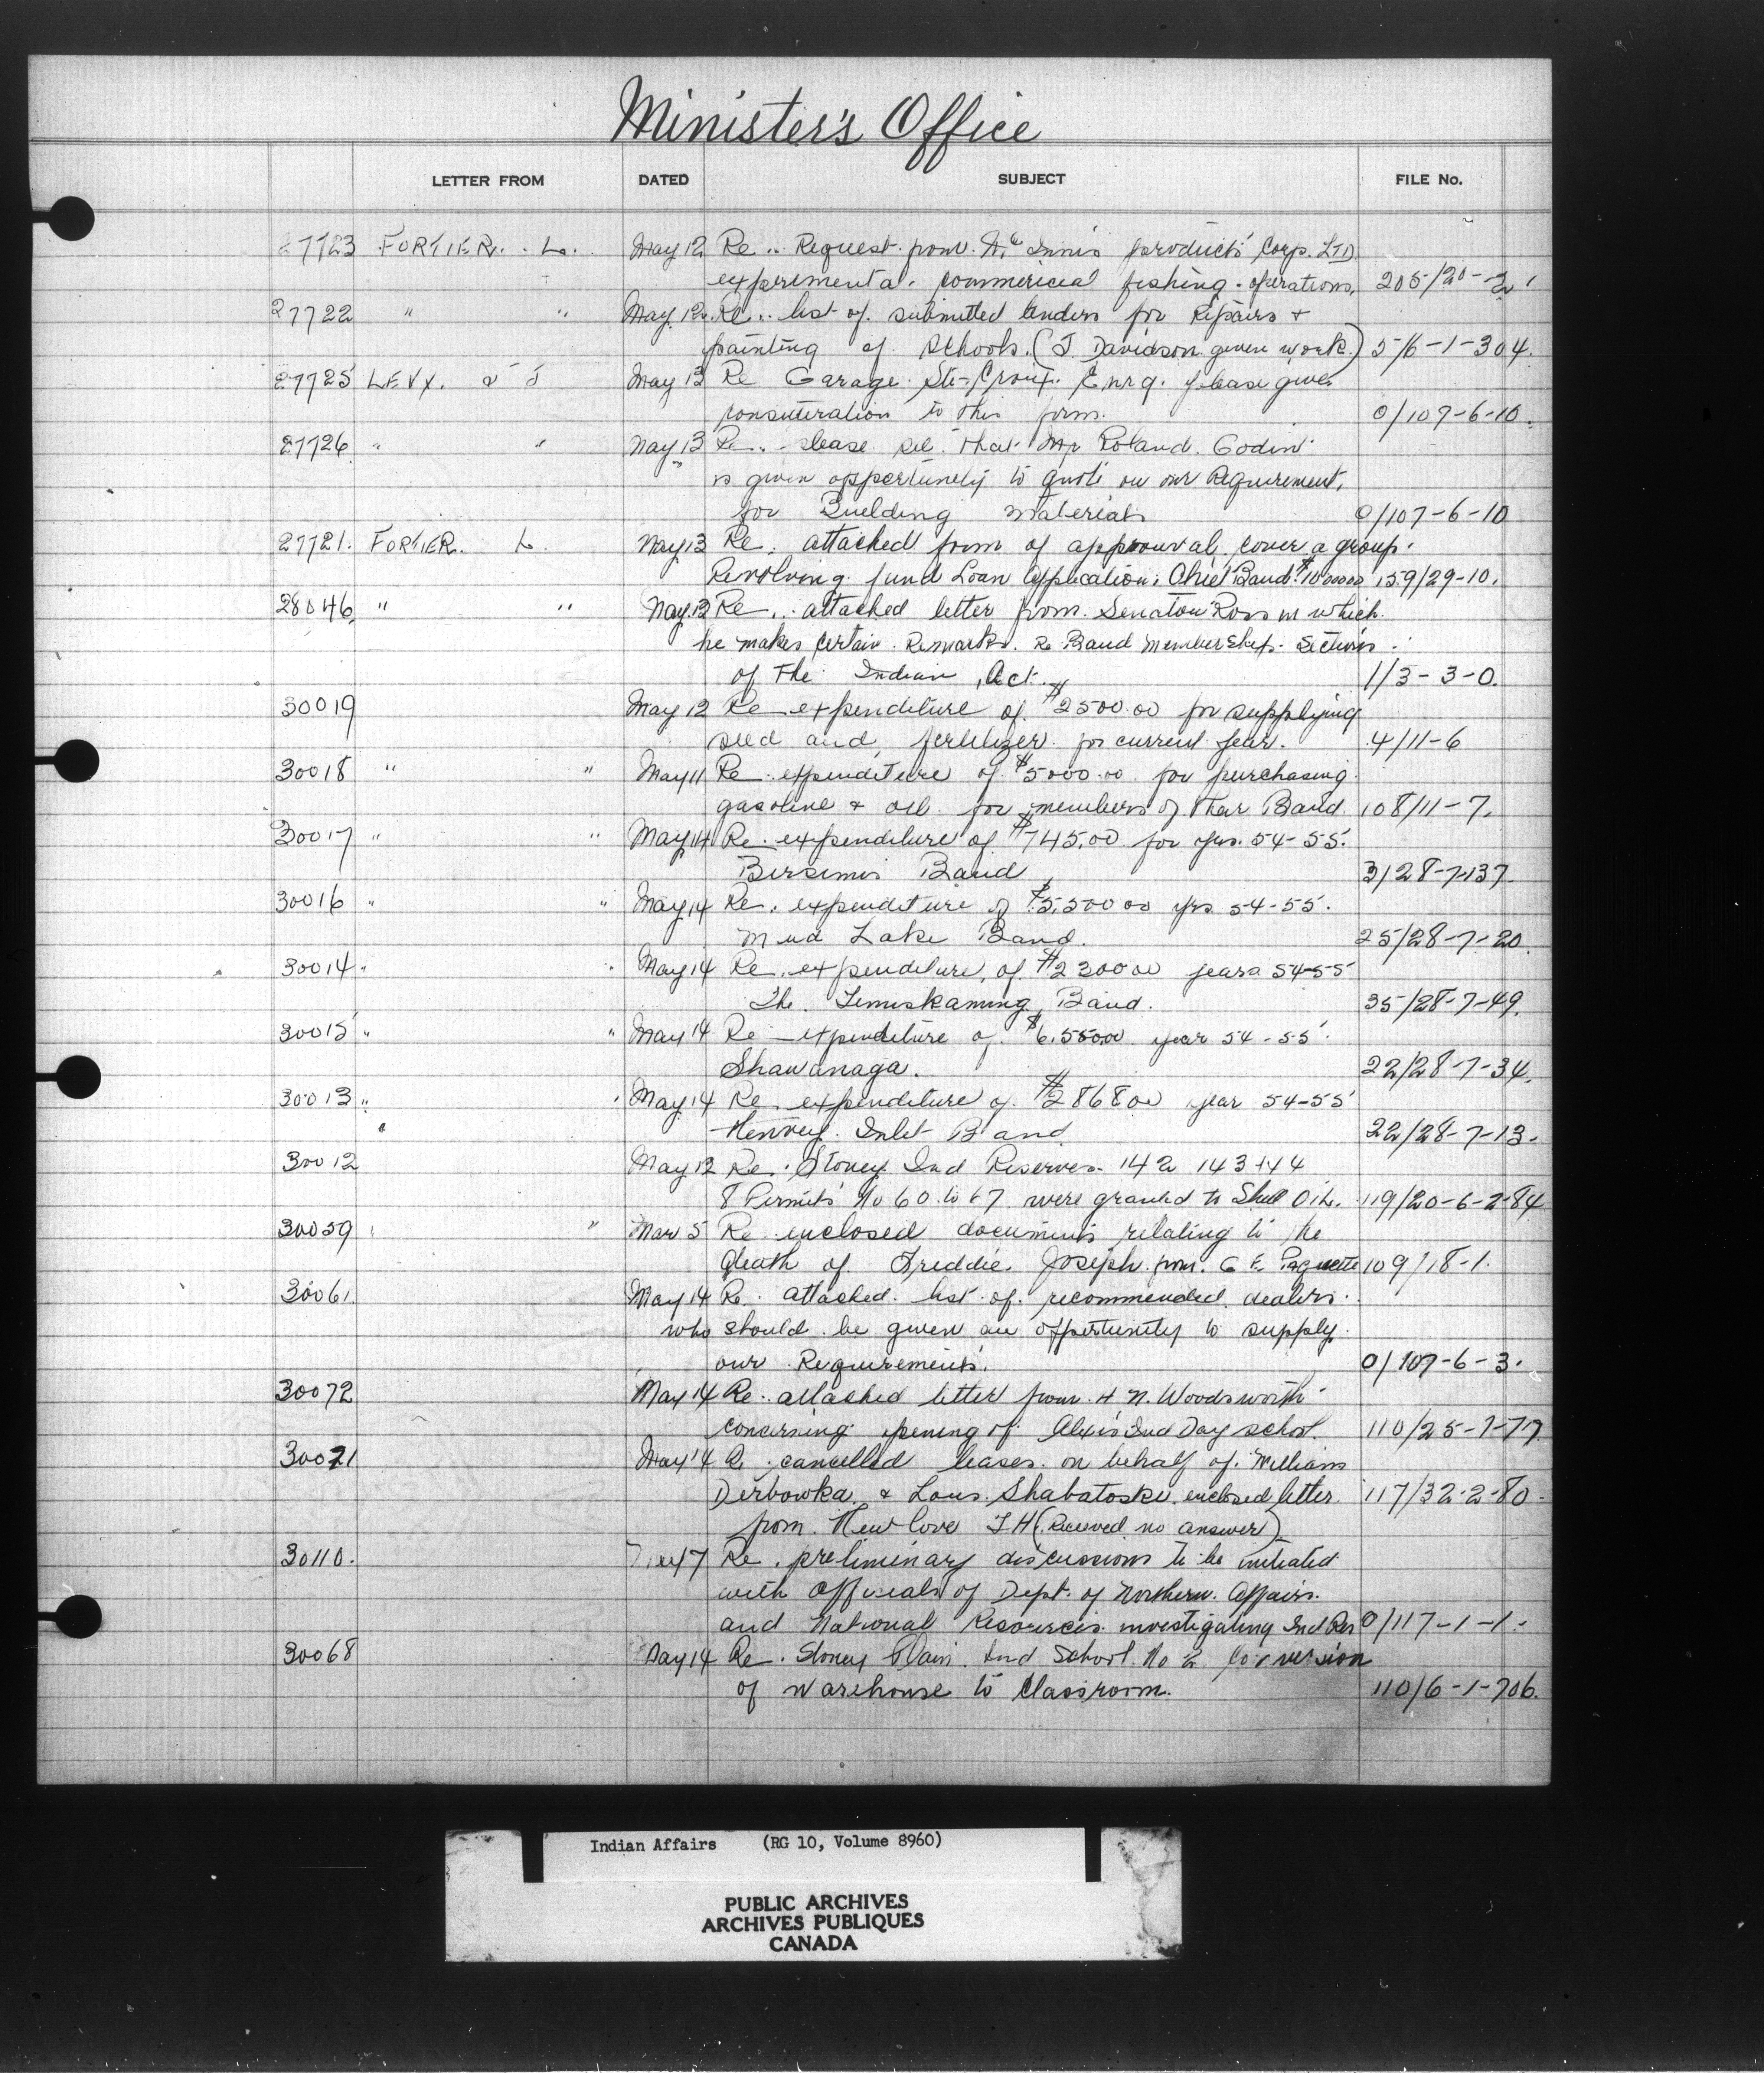 Minister's Office
LETTER FROM DATED SUBJECT FILE No.
27723 FORTIER. L. May 12 Re.. Request from McInnis products Corp. LTD
experimental commericial fishing operations, 205/20-2
27722 " " May 12 Re.. list of submitted tenders for Repairs +
painting of schools. (J. Davidson given work) 5/6-1-304.
27725 LEVY. May 13 Re Garage Ste-Croix. Enrg. please give
consideration to this firm. 0/107-6-10.
27726 " " May 13 Re.. please see that Mr Roland Godin
is given oppertunety to quote on our Requirement,
for Building materials 0/107-6-10
27721. FORTIER. L. May 13 Re. attached form of approuval cover a group
Revolving fund Loan Application, Band. 159/29-10.
28046 " " May 13 Re.. attached letter from Senator Ross in which
he makes certain Remarks. Re Band Membership Sections
of the Indian Act. 1/3-3-0.
30019 May 12 Re expenditure of $2500.00 for supplying
seed and fertilizer for current year. 4/11-6
30018 " " May 11 Re. expenditure of $5000.00 for purchasing
gasoline & oil for members of their Band. 108/11-7.
30017 " " May 14 Re. expenditure of $745.00 for yrs. 54-55.
Bersimis Band 3/28-7-137
30016 " " May 14 Re. expenditure of $5,500 00 yrs 54-55.
Mud Lake Band. 25/28-7-20.
30014 " " May 14 Re. expenditure, of $2300 00 years 54-55
The Temiskaming Band. 35/28-7-49.
30015 " " May 14 Re expenditure of $6,550.00 year 54-55.
Shawanaga. 22/28-7-34.
30013 " " May 14 Re. expenditure of $2868 00 year 54-55
Henvey Inlet Band 22/28-7-13.
30012 May 12 Re. Stoney Ind Reserves 142 143 144
8 Permits No 60 to 67 were granted to Shell Oil. 119/20-6-2-84
30059 " Mar 5 Re enclosed documents relating to the
death of Freddie Joseph from. G E. Paquette 109/18-1.
30061. May 14 Re. attached list of recommended dealers.
who should be given an opportunity to supply
our Requirements. 0/107-6-3.
30072 May 14 Re. attached letter from H N. Woodsworth
concerning opening of Alexis Ind Day school. 110/25-1-77
30071 May 14 Re. cancelled leases on behalf of William
Derbowka & Louis Shabatoski enclosed letter 117/32-2-80.
from Newlove J H (Received no answer)
30110. Re. preliminary discussions to be initiated
with officials of Dept. of Northern. Affairs.
and National Resources investigating Ind Res 0/117-1-1.
30068 May 14 Re. Stoney Plain Ind School No 2 Conversion
of warehouse to classroom. 110/6-1-706.
Indian Affairs (RG 10, Volume 8960)
PUBLIC ARCHIVES
ARCHIVES PUBLIQUES
CANADA